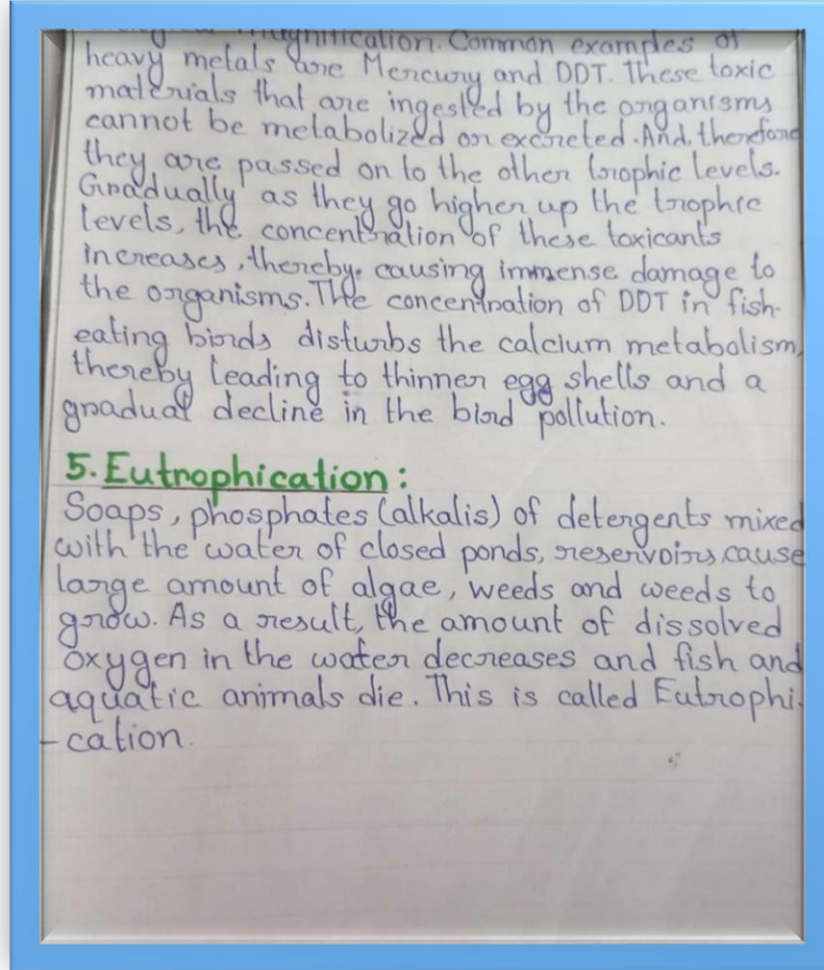 magnification. Common examples of
heavy metals are Mercury and DDT. These toxic
materials that are ingested by the organisms
cannot be metabolized or excreted. And, therefore
they are passed on to the other trophic levels.
Gradually as they go higher up the trophic
levels, the concentration of these toxicants
increases, thereby, causing immense damage to
the organisms. The concentration of DDT in fish-
eating birds disturbs the calcium metabolism,
thereby leading to thinner egg shells and a
gradual decline in the bird pollution.
5. Eutrophication:
Soaps, phosphates (alkalis) of detergents mixed
with the water of closed ponds, reservoirs, cause
large amount of algae, weeds and weeds to
grow. As a result, the amount of dissolved
oxygen in the water decreases and fish and
aquatic animals die. This is called Eutrophi-
-cation.